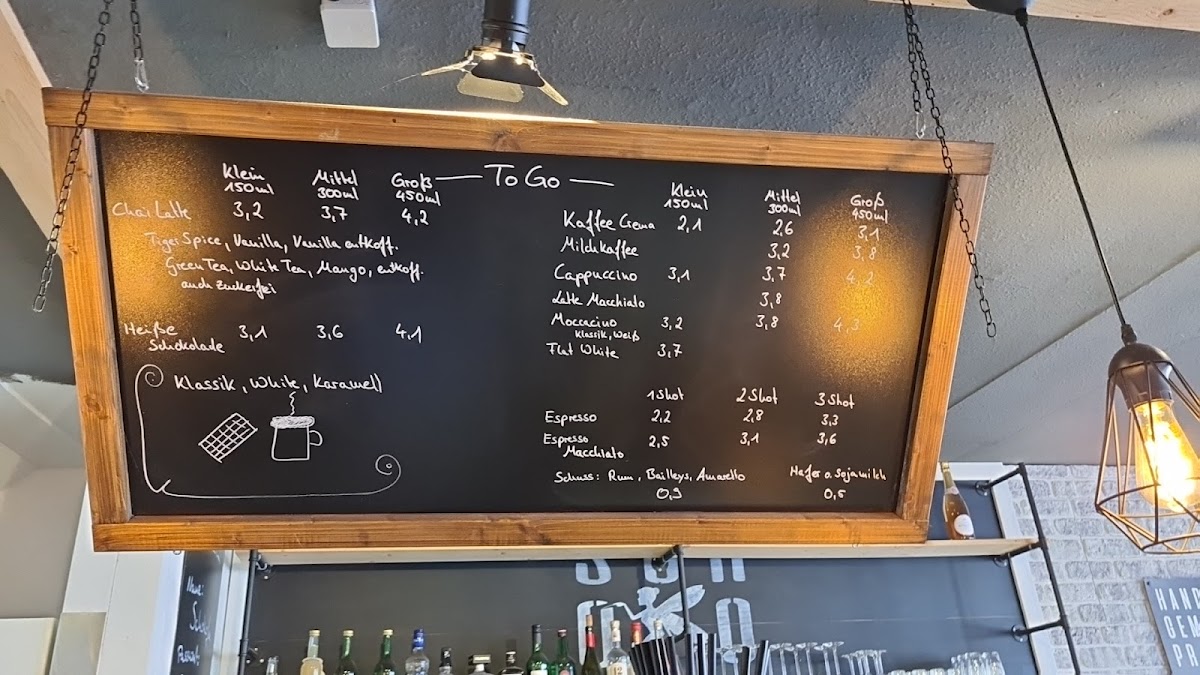 To Go
Klein Mittel Groß
150ml 300ml 450ml
Chai Latte 3,2 3,7 4,2
Tiger Spice, Vanilla, Vanilla entkoff.
Green Tea, White Tea, Mango, entkoff.
auch Zuckerfrei
Heiße 3,1 3,6 4,1
Schokolade
Klassik, White, Karamell
Klein Mittel Groß
150ml 300ml 450ml
Kaffee Crema 2,1 2,6 3,1
Milchkaffee 3,2 3,8
Cappuccino 3,1 3,7 4,2
Latte Macchiato 3,8
Moccacino 3,2 3,8 4,3
Klassik, Weiß
Flat White 3,7
1 Shot 2 Shot 3 Shot
Espresso 2,2 2,8 3,3
Espresso 2,5 3,1 3,6
Macchiato
Schuss: Rum, Baileys, Amaretto
0,9
Hafer o. Sojamilch
0,5
HAND
GEM
PR